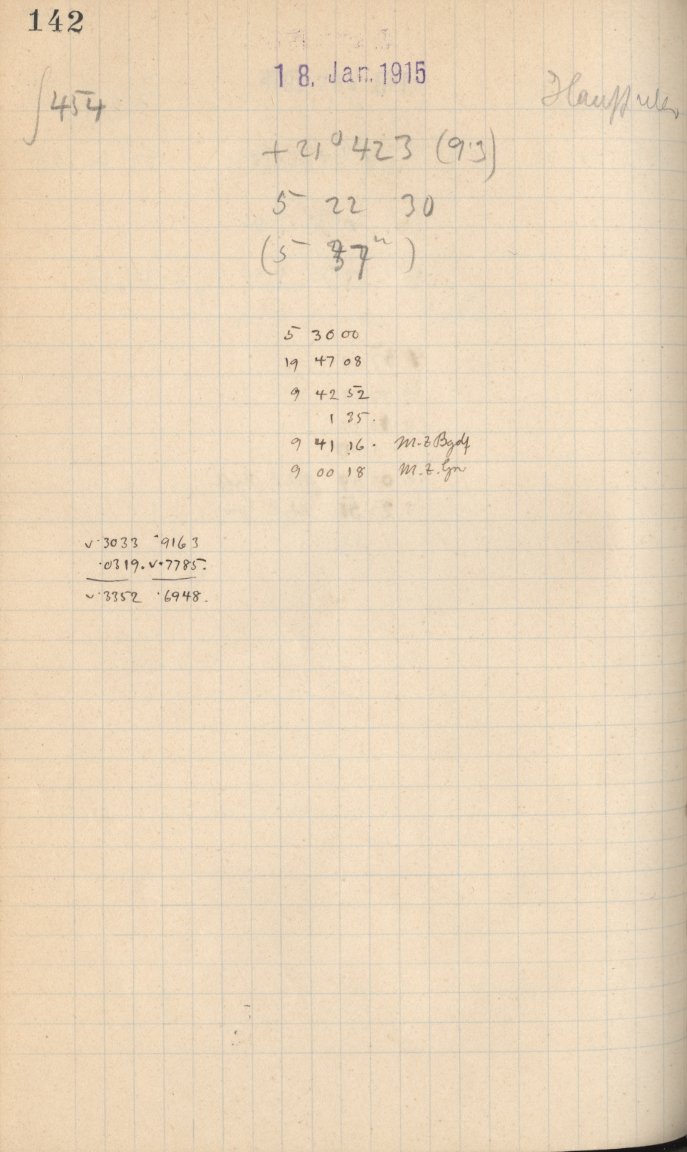 142
18. Jan. 1915
∫454
+21° 423 (9.3)
5 22 30
(5 37ᵐ)
5 30 00
19 47 08
9 42 52
1 35.
9 41 16. M.Z. Bgdf
9 00 18 M.Z. Gr
v.3033 .9163
.0319. v.7785.
v.3352 .6948.